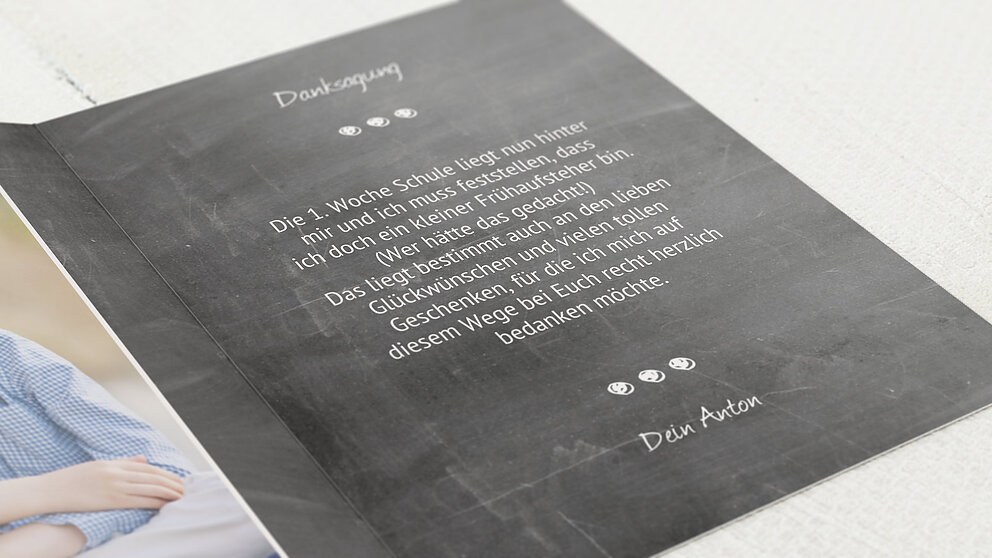 Danksagung
Die 1. Woche Schule liegt nun hinter
mir und ich muss feststellen, dass
ich doch ein kleiner Frühaufsteher bin.
(Wer hätte das gedacht!)
Das liegt bestimmt auch an den lieben
Glückwünschen und vielen tollen
Geschenken, für die ich mich auf
diesem Wege bei Euch recht herzlich
bedanken möchte.
Dein Anton